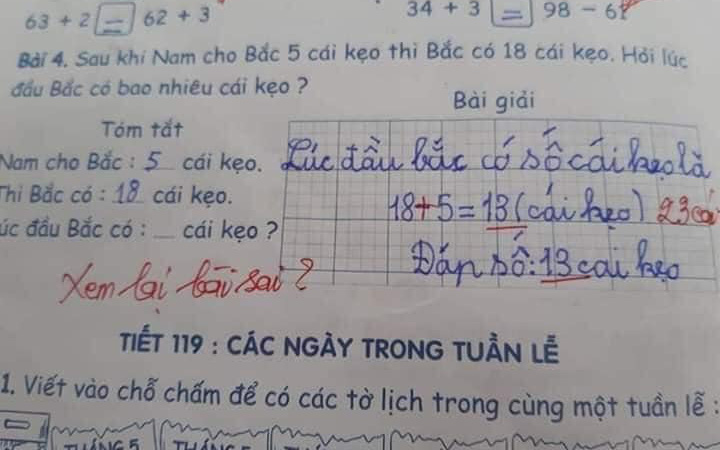 63 + 2 = 62 + 3
34 + 3 = 98 - 61
Bài 4. Sau khi Nam cho Bắc 5 cái kẹo thì Bắc có 18 cái kẹo. Hỏi lúc
đầu Bắc có bao nhiêu cái kẹo ?
Bài giải
Tóm tắt
Nam cho Bắc : 5 cái kẹo.
Thì Bắc có : 18 cái kẹo.
úc đầu Bắc có : __ cái kẹo ?
Lúc đầu bắc có số cái kẹo là
18+5=13 (cái kẹo) 23 cái
Đáp số: 13 cai kẹo
Xem lại bài sai ?
TIẾT 119 : CÁC NGÀY TRONG TUẦN LỄ
1. Viết vào chỗ chấm để có các tờ lịch trong cùng một tuần lễ :
THÁNG 5